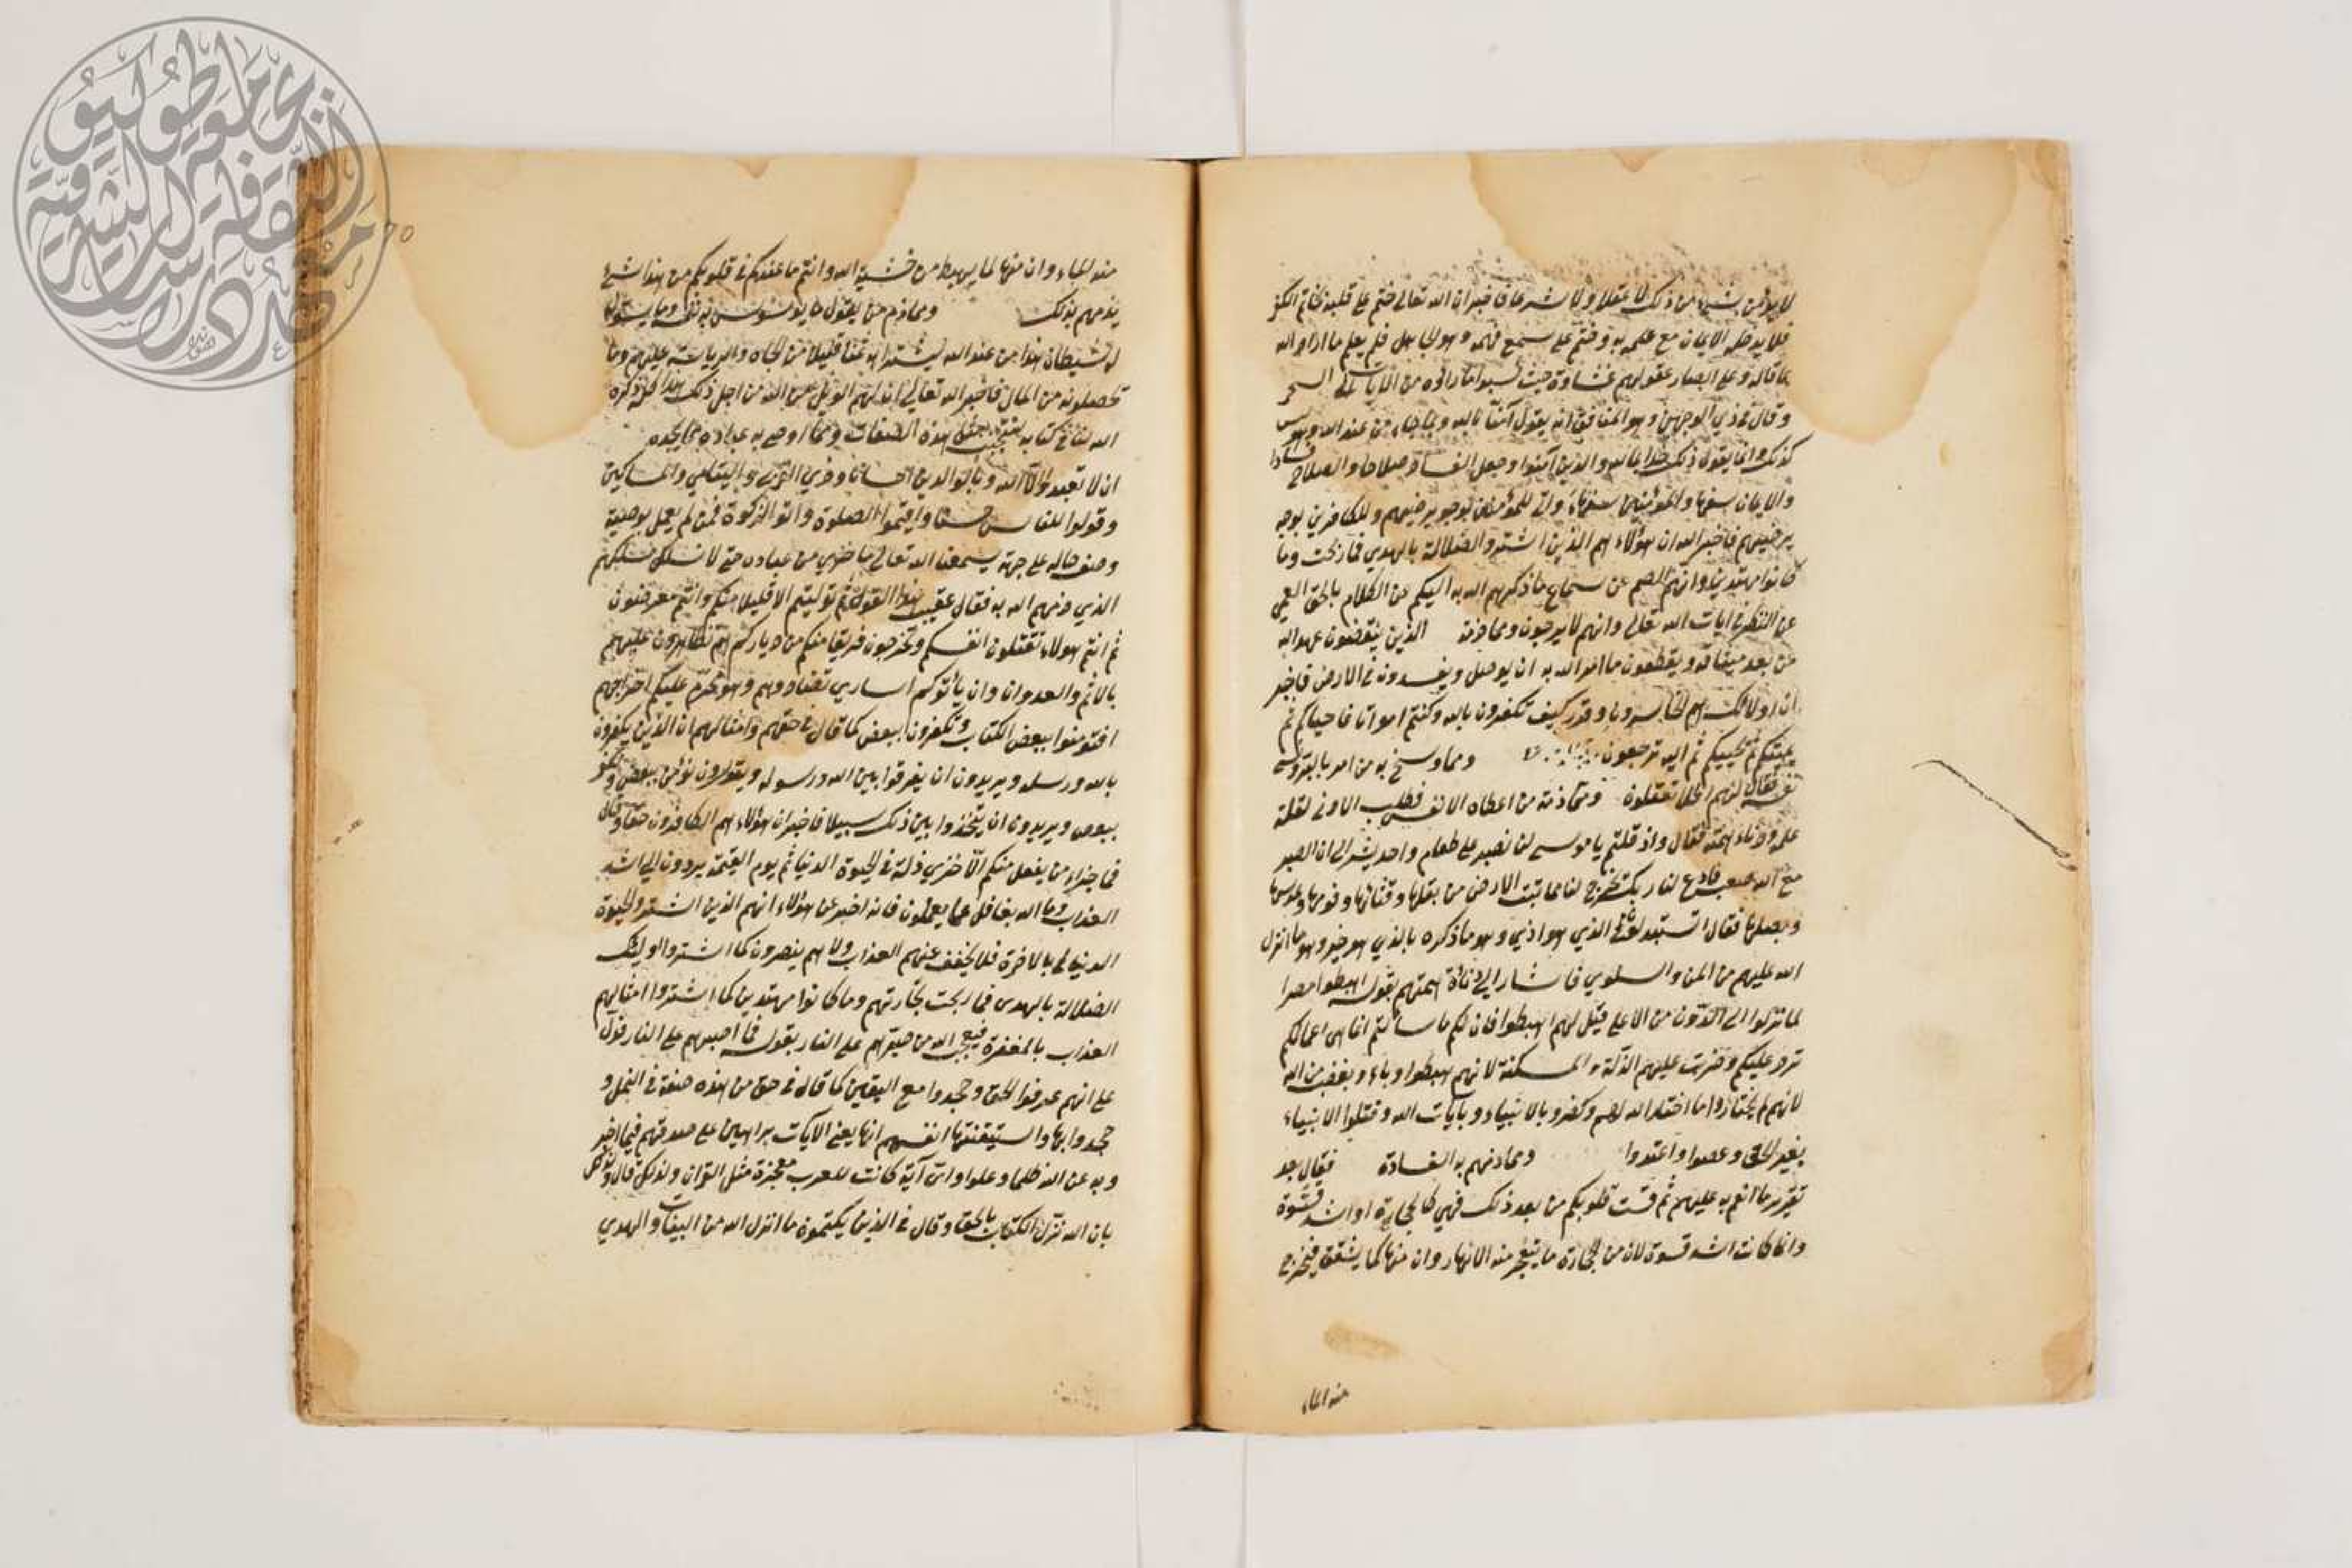 لا يؤمن بشيء من ذلك لا عقلا ولا شرعا فاخبر ان الله تعالى ختم على قلبه بخاتم الكفر
فلا يدخله الايمان مع علمه به وختم على سمع فهمه وهو الجاهل فلم يعلم ما اراد الله
بما قاله وعلى ابصار عقولهم غشاوة حيث نسبوا ما راوه من الآيات الى السحر
وقال في ذي الوجهين وهو المنافق انه يقول آمنا بالله وبما جاء من عند الله وليس
كذلك وانما يقول ذلك خداعا لله والذين آمنوا وجعل الفساد صلاحا والصلاح فسادا
والايمان سفها والمؤمنين سفهاء واتى للمؤمنين بوجه يرضيهم وللكافرين بوجه
يرضيهم فاخبر الله ان هؤلاء هم الذين اشتروا الضلالة بالهدى فما ربحت وما
كانوا مهتدين وانهم الصم عن سماع ما ذكرهم الله به البكم عن الكلام بالحق العمي
عن النظر في ايات الله تعالى وانهم لا يرجعون ومما ذمه الذين ينقضون عهد الله
من بعد ميثاقه ويقطعون ما امر الله به ان يوصل ويفسدون في الارض فاخبر
ان اولائك هم الخاسرون وقرر كيف تكفرون بالله وكنتم امواتا فاحياكم ثم
يميتكم ثم يحييكم ثم اليه ترجعون ومما وبخ به من امر بالبر ونسي
نفسه فقال لهم افلا تعقلون ومما ذمه من اعطاه الانفس فطلب الادون لقلة
علمه ودناءة همته فقال واذ قلتم يا موسى لن نصبر على طعام واحد يشير الى ان الصبر
مع الله صعب فادع لنا ربك يخرج لنا مما تنبت الارض من بقلها وقثائها وفومها وعدسها
وبصلها فقال اتستبدلون الذي هو ادنى وهو ما ذكره بالذي هو خير وهو ما انزل
الله عليهم من المن والسلوى فاشار الى دناءة همتهم بقوله اهبطوا مصرا
لما نزلوا الى الدون من الاعلى قيل لهم اهبطوا فان لكم ما سألتم انما هي اعمالكم
ترد عليكم وضربت عليهم الذلة والمسكنة لانهم هبطوا وباءو بغضب من الله
لانهم لم يختاروا ما اختار الله لهم وكفروا بالانبياء وبآيات الله وقتلوا الانبياء
بغير الحق وعصوا واعتدوا ومما ذمهم به القساوة فقال بعد
تقرير ما انعم به عليهم ثم قست قلوبكم من بعد ذلك فهي كالحجارة او اشد قسوة
وانما كانت اشد قسوة لان من الحجارة ما يتفجر منه الانهار وان منها لما يشقق فيخرج
منه الماء
منه الماء وان منها لما يهبط من خشية الله وانتم ما عندكم في قلوبكم من هذا شيء
يذمهم بذلك ومما ذم من يقول ما يوسوس به نفسه وما يسوله
له شيطان هذا من عند الله ليشتروا به ثمنا قليلا من الجاه والرياسة عليهم وما
تحصلونه من المال فاخبر الله تعالى ان لهم الويل من الله من اجل ذلك هذا كله ذكره
الله لنا في كتابه لنجتنب مثل هذه الصفات ومما اوصى به عباده مما يحمده
ان لا تعبدوا الا الله وبالوالدين احسانا وذي القربى واليتامى والمساكين
وقولوا للناس حسنا واقيموا الصلوة واتوا الزكوة فمن لم يعمل بوصيته
وصف حاله على جهة يسمعنا الله تعالى ما جرى من عباده حتى لا نسلك مسلكهم
الذي ذمهم الله به فقال عقيب هذا القول ثم توليتم الا قليلا منكم وانتم معرضون
ثم انتم هولاء تقتلون انفسكم وتخرجون فريقا منكم من ديارهم تظاهرون عليهم
بالاثم والعدوان وان يأتوكم اسارى تفادوهم وهو محرم عليكم اخراجهم
افتومنوا ببعض الكتاب وتكفرون ببعض كما قال في حقهم وامثالهم ان الذين يكفرون
بالله ورسله ويريدون ان يفرقوا بين الله ورسوله ويقولون نؤمن ببعض ونكفر
ببعض ويريدون ان يتخذوا بين ذلك سبيلا فاخبر ان هؤلاء هم الكافرون حقا وقال
فما جزاء من يفعل منكم الا خزي ذلة في الحيوة الدنيا ثم يوم القيمة يردون الى اشد
العذاب وما الله بغافل عما يعملون فانه اخبر عن هؤلاء انهم الذين اشتروا الحيوة
الدنيا بالاخرة فلا يخفف عنهم العذاب ولا هم ينصرون كما اشتروا اوليئك
الضلالة بالهدى فما ربحت تجارتهم وما كانوا مهتدين كما اشتروا امثالهم
العذاب بالمغفرة فيعجب الله من صبرهم على النار بقوله فما اصبرهم على النار فدل
على انهم عرفوا الحق وجحدوا مع اليقين كما قال في حق من هذه صفته في النمل و
جحدوا بها واستيقنتها انفسهم انها يعني الآيات براهين على صدقهم فيما اخبر
وبه عن الله ظلما وعلوا واي آية كانت للعرب معجزة مثل القران ولذلك قال ذلك
بان الله نزل الكتاب بالحق وقال في الذين يكتمون ما انزل الله من البينات والهدى